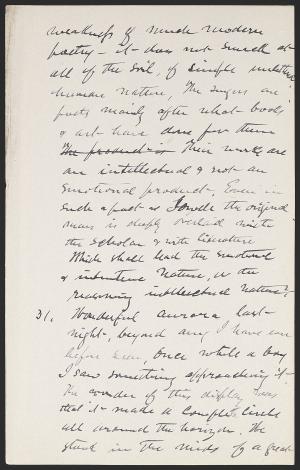 weakness of much modern
poetry - it does not smack at
all of the soil, of simple unlettered
human nature, The singers are
poets mainly after what books
& art have done for them
The product is Their works are
an intellectual & not an
emotional product, Even in
such a poet as Lowell the original
man is deeply overlaid with
the scholar & with literature
Which shall lead the emotional
& intuitive nature, or the
reasoning intellectual nature?
31. Wonderful aurora last-
night, beyond any I have ever
before seen, Once while a boy
I saw something approaching it.
The wonder of this display was
that it made a complete circle
all around the horizon, We
stood in the midst of a great